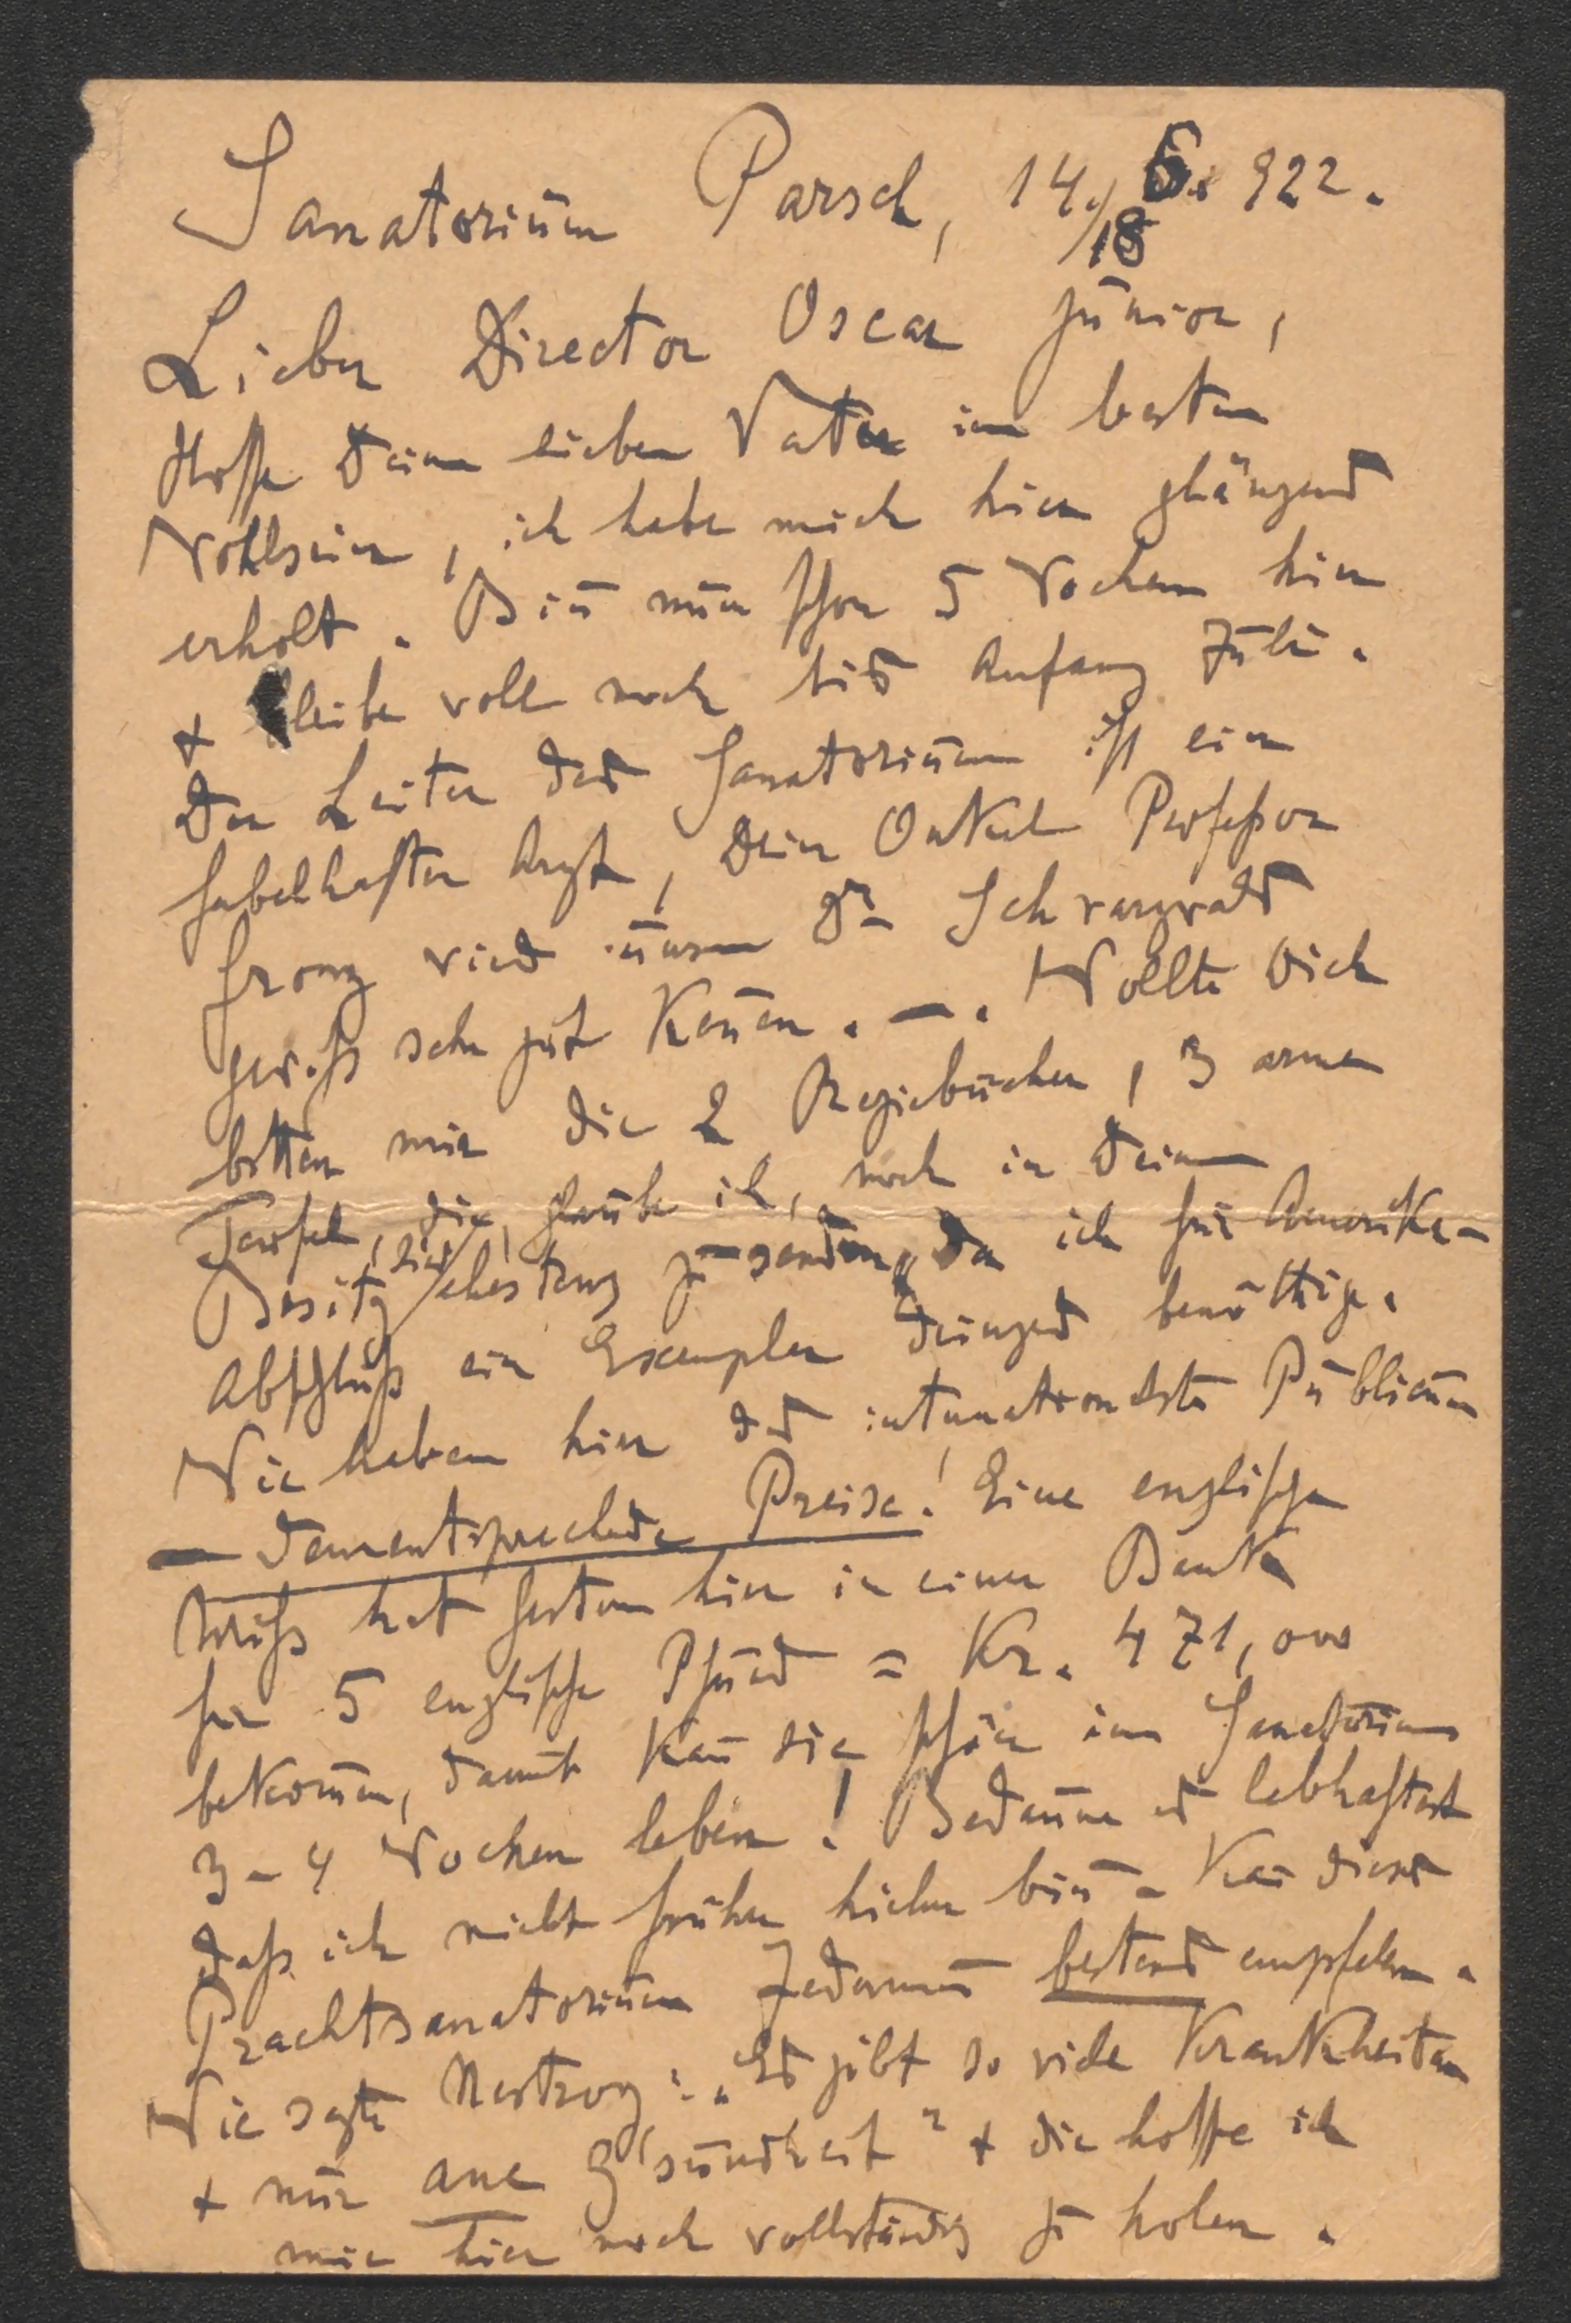 Sanatorium Parsch, 14./6. 922.
18
Lieber Director Oscar junior,
Hoffe Deinen lieben Vater im besten
Wohlsein, ich habe mich hier glänzend
erholt. Bin nun schon 5 Wochen hier
+ bleibe wohl noch bis Anfang Juli.
Der Leiter des Sanatorium ist ein
fabelhafter Arzt, Dein Onkel Professor
Franz wird unsern Dr Schwarzwald
gewiß sehr gut kennen. —. Wollte Dich
bitten mir die 2 Regiebücher, 3 arme
Teufel, die, glaube ich, noch in Deinem
Besitz sind, ehestens zu senden, da ich für Amerika-
Abschluß ein Exemplar dringend benöthige.
Wir haben hier das internationalste Publicum
— dementsprechende Preise! Eine englische
Miß hat gestern hier in einer Bank
für 5 englische Pfund = Kr. 471,000
bekommen, damit kann sie schön im Sanatorium
3-4 Wochen leben! Bedaure es lebhaftest
daß ich nicht früher hieher bin. Kann dieses
Prachtsanatorium Jedermann bestens empfelen.
Wie sagte Nestroy: „Es gibt so viele Krankheiten
+ nur ane G'sundheit" + die hoffe ich
mir hier noch vollständig zu holen.